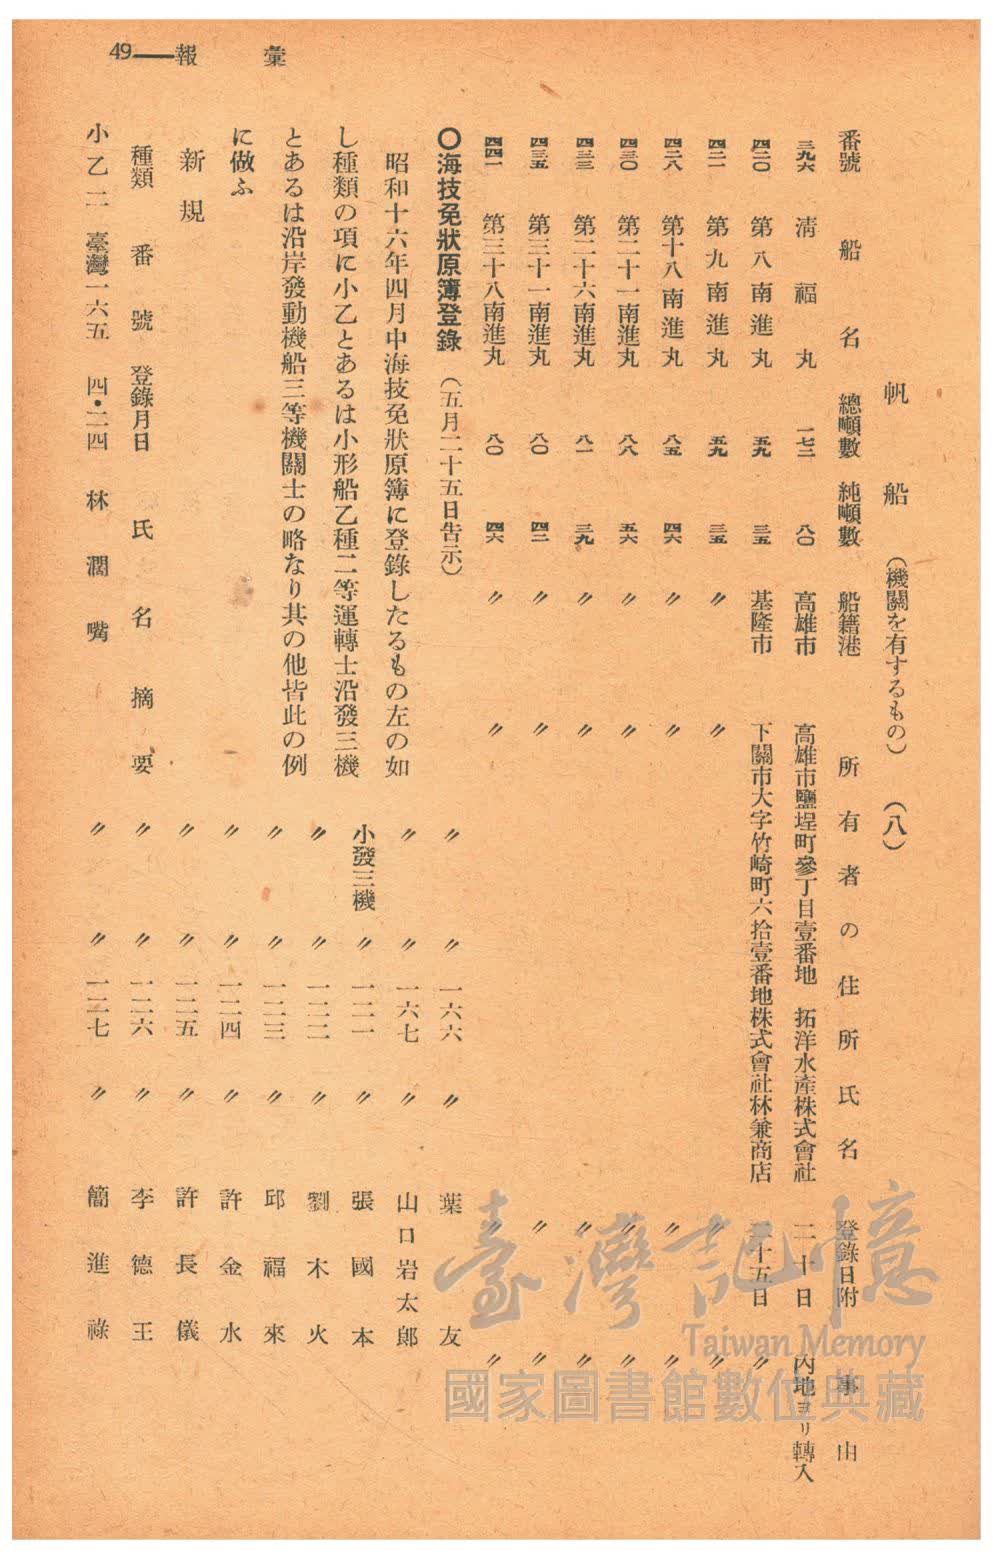 彙報——49
帆船 (機關を有するもの) (八)
番號 船名 總噸數 純噸數 船籍港 所有者の住所氏名 登錄日附 事由
三九六 淸福丸 一七二 八〇 高雄市 高雄市鹽埕町參丁目壹番地 拓洋水產株式會社 二十日 內地ヨリ轉入
四二〇 第八南進丸 五九 三五 基隆市 下關市大字竹崎町六拾壹番地株式會社林兼商店 二十五日 〃
四二一 第九南進丸 五九 三五 〃 〃 〃 〃
四二八 第十八南進丸 八五 四六 〃 〃 〃 〃
四三〇 第二十一南進丸 八八 五六 〃 〃 〃 〃
四三三 第二十六南進丸 八一 三九 〃 〃 〃 〃
四三五 第三十一南進丸 八〇 四二 〃 〃 〃 〃
四四一 第三十八南進丸 八〇 四六 〃 〃 〃 〃
〇海技免狀原簿登錄 (五月二十五日吿示)
昭和十六年四月中海技免狀原簿に登錄したるもの左の如
し種類の項に小乙とあるは小形船乙種二等運轉士沿發三機
とあるは沿岸發動機船三等機關士の略なり其の他皆此の例
に倣ふ
新規
種類 番號 登錄月日 氏名 摘要
小乙二 臺灣一六五 四・二四 林濶嘴
〃 〃一六六 〃 葉友
〃 〃一六七 〃 山口岩太郞
小發三機 〃一二一 〃 張國本
〃 〃一二二 〃 劉木火
〃 〃一二三 〃 邱福來
〃 〃一二四 〃 許金水
〃 〃一二五 〃 許長儀
〃 〃一二六 〃 李德王
〃 〃一二七 〃 簡進祿
臺灣記憶
Taiwan Memory
國家圖書館數位典藏